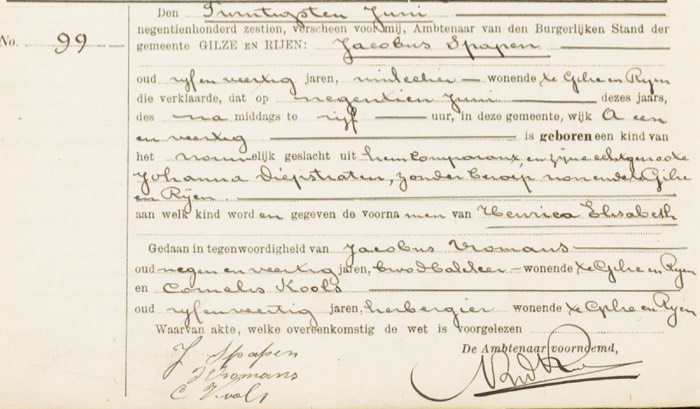 No. 99
Den Twintigsten Juni
negentienhonderd zestien, verscheen voor mij, Ambtenaar van den Burgerlijken Stand der
gemeente GILZE EN RIJEN: Jacobus Spapen
oud vijf en veertig jaren, winkelier wonende te Gilze en Rijen
die verklaarde, dat op negentien Juni dezes jaars,
des na middags te vijf uur, in deze gemeente, wijk A een
en veertig is geboren een kind van
het vrouwelijk geslacht uit hem comparant, en zijne echtgenoote
Johanna Diepstraten, zonder beroep wonende te Gilze
en Rijen
aan welk kind word en gegeven de voorna men van Henrica Elisabeth
Gedaan in tegenwoordigheid van Jacobus Vromans
oud negen en veertig jaren, broodbakker wonende te Gilze en Rijen
en Cornelis Kools
oud vijf en veertig jaren, herbergier wonende te Gilze en Rijen
Waarvan akte, welke overeenkomstig de wet is voorgelezen
De Ambtenaar voornoemd,
J Spapen
J Vromans
C Kools